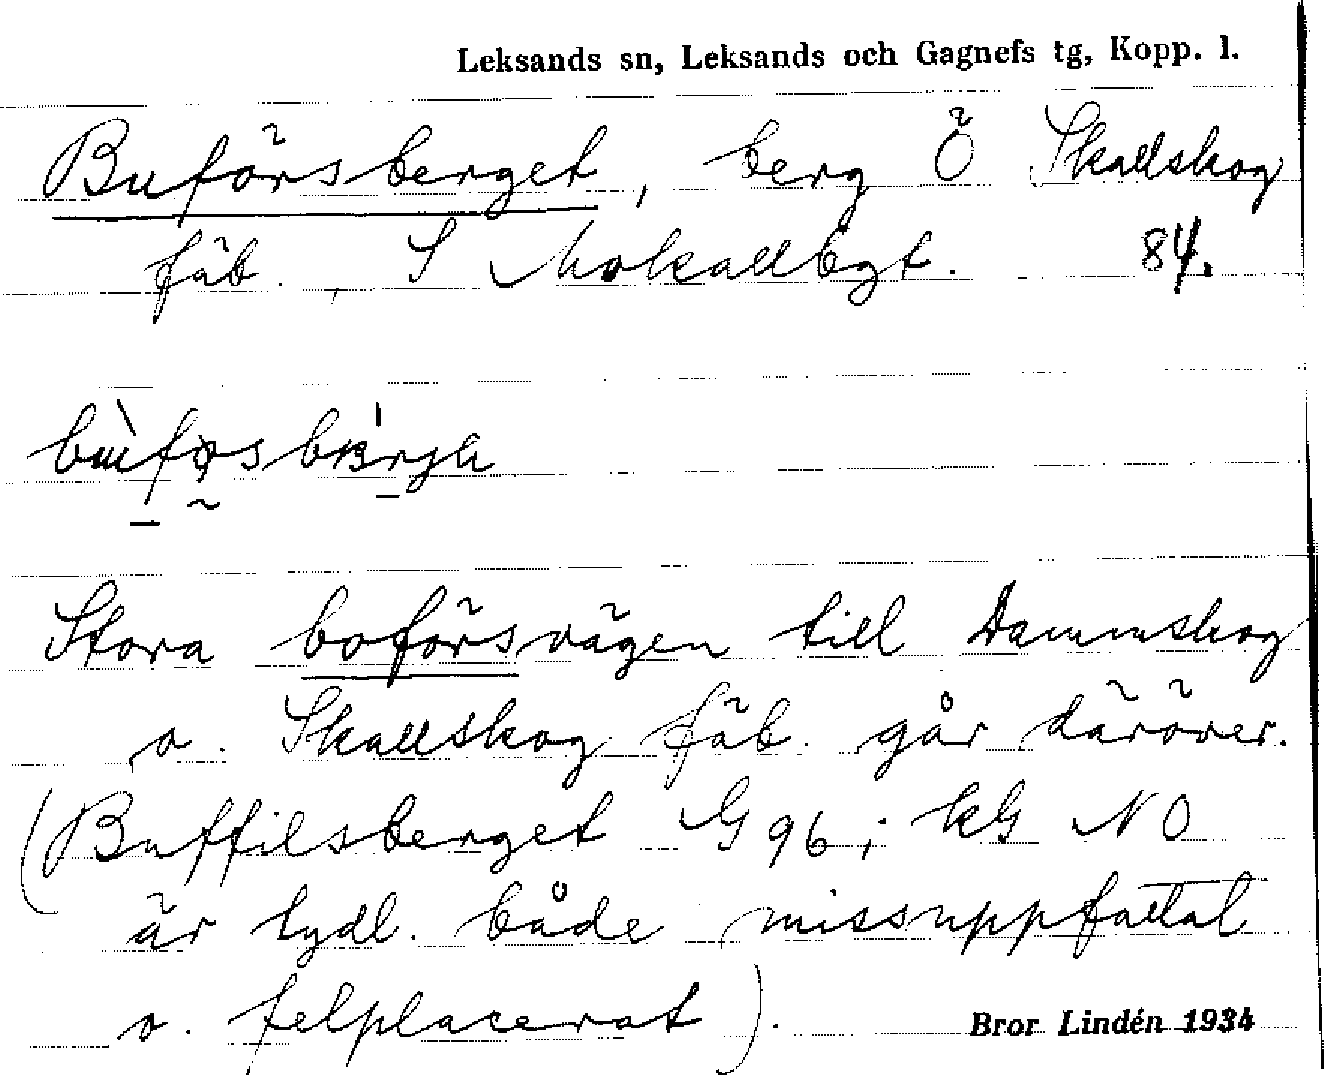 Leksands sn, Leksands och Gagnefs tg, Kopp. l.
Buförsberget, berg Ö Skallskog
fäb., S Mokallbgt. 84.
Stora boförsvägen till Dammskog
o. Skallskog fäb. går däröver.
(Buffilsberget G 96; kG NO
är tydl. både missuppfattat
o. felplacerat).
Bror Lindén 1934